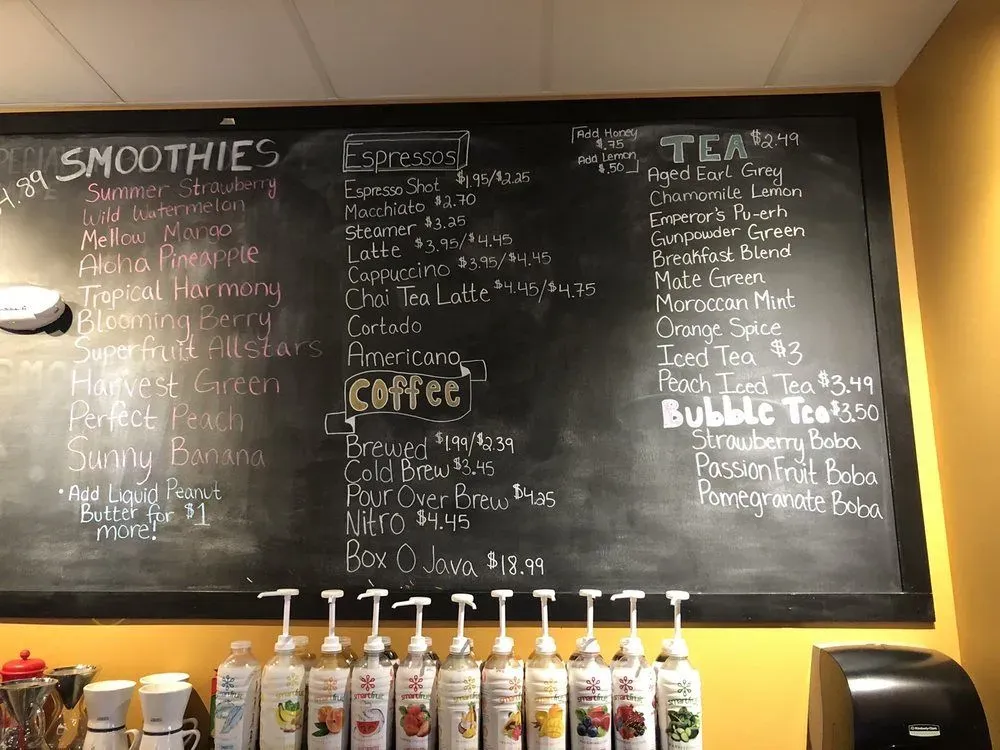 SMOOTHIES
4.89
Summer Strawberry
Wild Watermelon
Mellow Mango
Aloha Pineapple
Tropical Harmony
Blooming Berry
Superfruit Allstars
Harvest Green
Perfect Peach
Sunny Banana
• Add Liquid Peanut
Butter for $1
more!
Espressos
Espresso Shot $1.95/$2.25
Macchiato $2.70
Steamer $3.25
Latte $3.95/$4.45
Cappuccino $3.95/$4.45
Chai Tea Latte $4.45/$4.75
Cortado
Americano
Coffee
Brewed $1.99/$2.39
Cold Brew $3.45
Pour Over Brew $4.25
Nitro $4.45
Box O Java $18.99
Add Honey
$.75
Add Lemon
$.50
TEA $2.49
Aged Earl Grey
Chamomile Lemon
Emperor's Pu-erh
Gunpowder Green
Breakfast Blend
Mate Green
Moroccan Mint
Orange Spice
Iced Tea $3
Peach Iced Tea $3.49
Bubble Tea $3.50
Strawberry Boba
Passion Fruit Boba
Pomegranate Boba
smartfruit
smartfruit
smartfruit
Kimberly-Clark